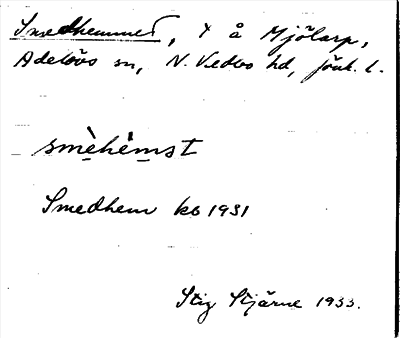 Smedhemmet, × å Mjölarp,
Adelövs sn, N. Vedbo hd, Jönk. l.
smè̱hèm̱st
Smedhem kb 1931
Stig Stjärne 1933.